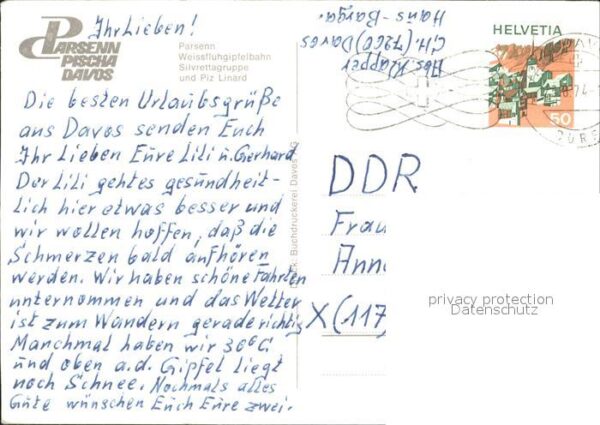 Ihr Lieben!
PARSENN
PISCHA
DAVOS
Parsenn
Weissfluhgipfelbahn
Silvrettagruppe
und Piz Linard
Die besten Urlaubsgrüße
aus Davos senden Euch
Ihr Lieben Eure Lili u. Gerhard
Der Lili gehtes gesundheit-
lich hier etwas besser und
wir wollen hoffen, daß die
Schmerzen bald aufhören
werden. Wir haben schöne Fahrten
unternommen und das Wetter
ist zum Wandern gerade richtig
Manchmal haben wir 30°C
und oben a.d. Gipfel liegt
noch Schnee. Nochmals alles
Gute wünschen Euch Eure zwei.
Buchdruckerei Davos AG
Abs. Klapper
CH. (7260) Davos
Haus-Barga.
HELVETIA
50
74
DDR
Frau
Anna
X (117
privacy protection
Datenschutz